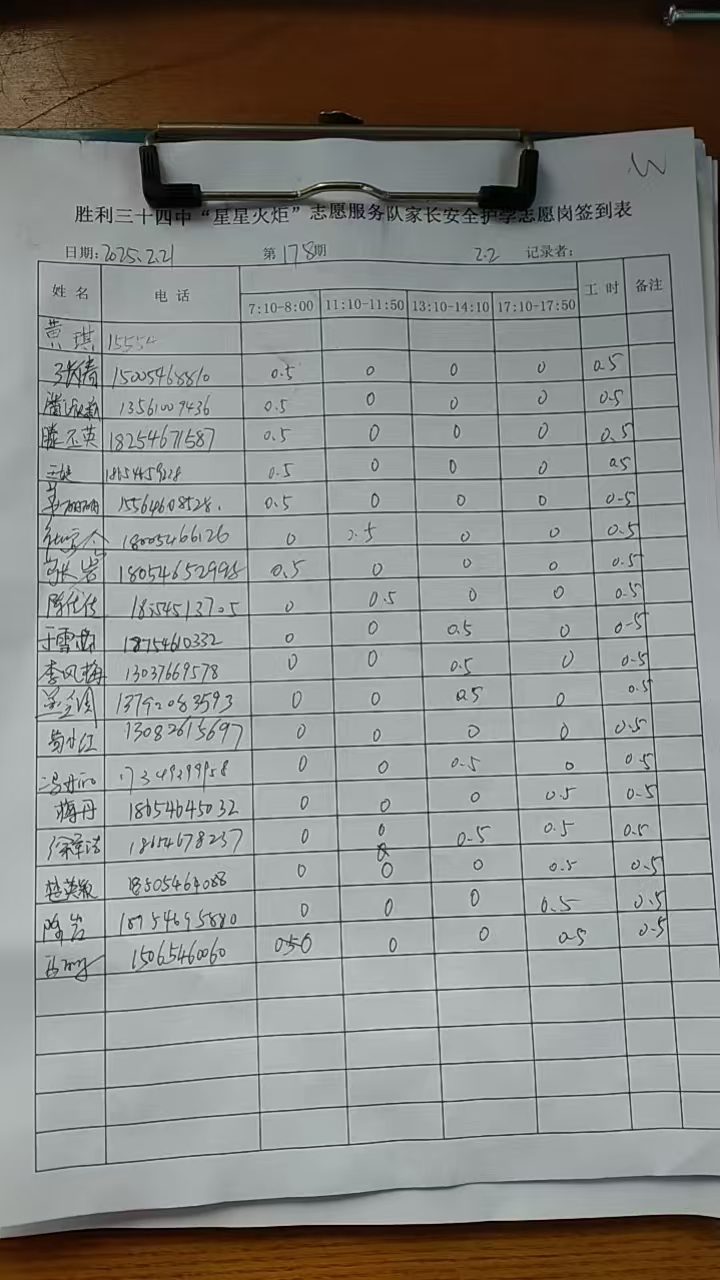 W
胜利三十四中“星星火炬”志愿服务队家长安全护学志愿岗签到表
日期:2025.2.21 第178期 2.2 记录者:
姓名 电话 7:10-8:00 11:10-11:50 13:10-14:10 17:10-17:50 工时 备注
黄琪 15554
张倩 15005468810 0.5 0 0 0 0.5
13561009436 0.5 0 0 0 0.5
滕丕英 18254671587 0.5 0 0 0 0.5
0.5 0 0 0 0.5
15564608528. 0.5 0 0 0 0.5
18005466126 0 0 0 0.5
18054652998 0.5 0 0 0 0.5
0 0.5 0 0 0.5
于雪梅 18754610332 0 0 0.5 0 0.5
李风梅 13037669578 0 0 0.5 0 0.5
13792083593 0 0 0.5 0 0.5
13082615697 0 0 0 0 0.5
17349299958 0 0 0.5 0 0.5
梅丹 18654645032 0 0 0 0.5 0.5
18654678237 0 0 0.5 0.5 0.5
楚英敏 18505464088 0 0 0 0.5 0.5
岩 18954695880 0 0 0 0.5 0.5
15065460060 0 0 0 0.5 0.5